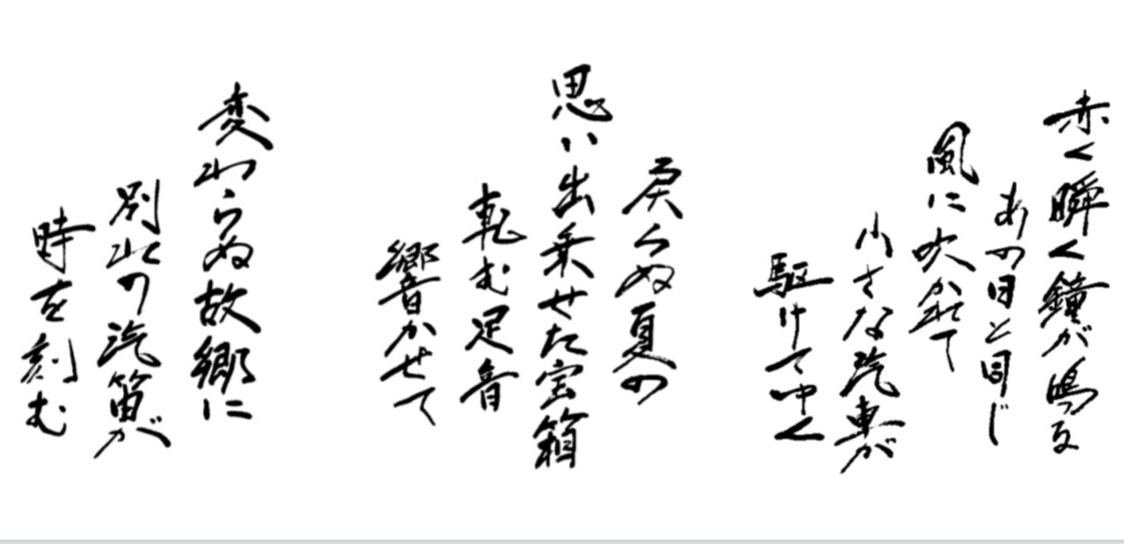 赤く瞬く鐘が鳴る
あの日と同じ
風に吹かれて
小さな汽車が
駆けてゆく
戻らぬ夏の
思い出乗せた宝箱
軋む足音
響かせて
変わらぬ故郷に
別れの汽笛が
時を刻む